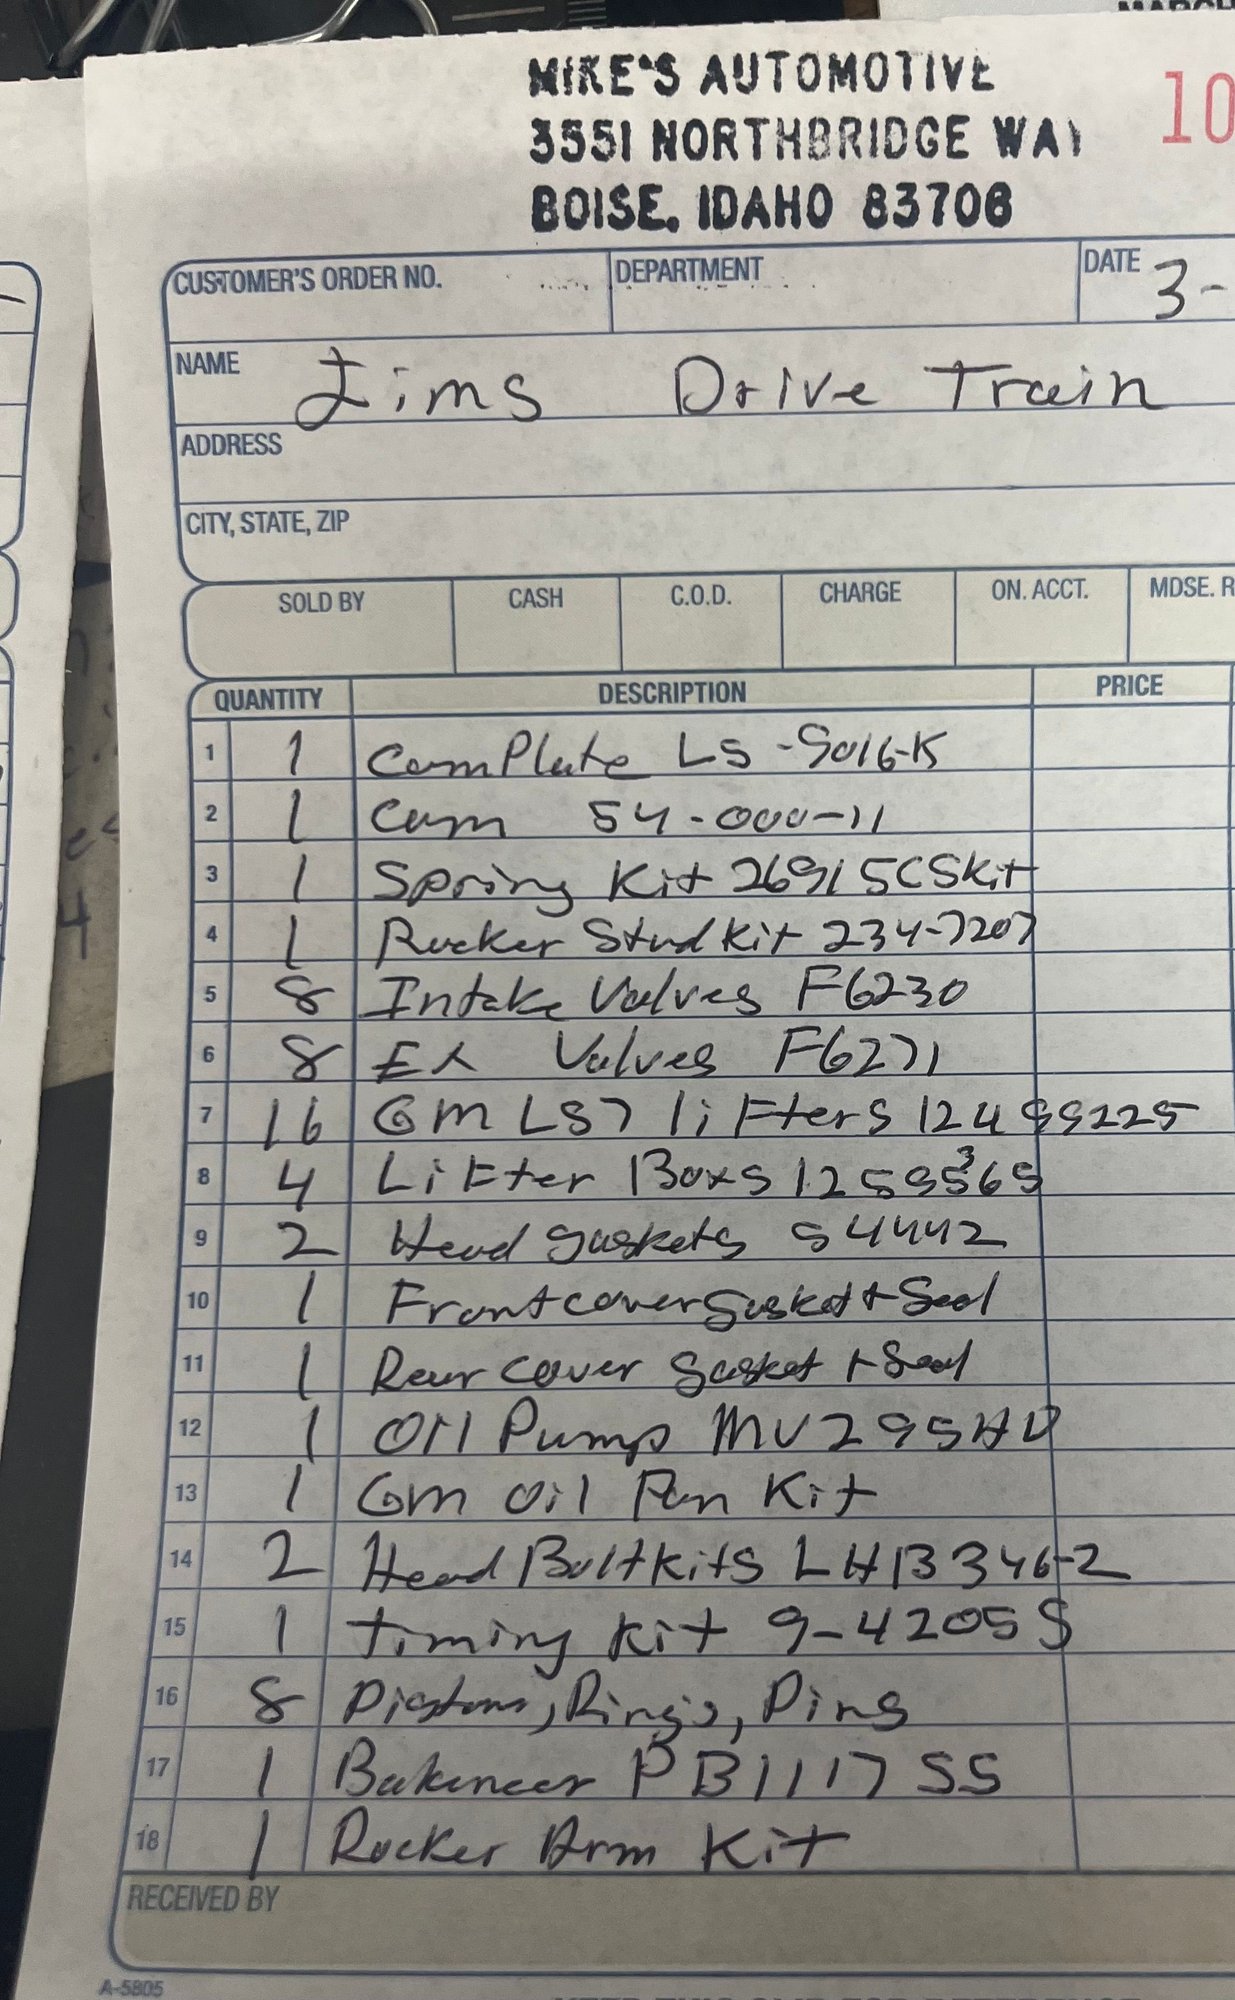 MIKE'S AUTOMOTIVE
3551 NORTHBRIDGE WAY
BOISE, IDAHO 83706
10
CUSTOMER'S ORDER NO.
DEPARTMENT
DATE 3-
NAME Jims Drive Train
ADDRESS
CITY, STATE, ZIP
SOLD BY CASH C.O.D. CHARGE ON. ACCT. MDSE. R
QUANTITY DESCRIPTION PRICE
1 1 Cam Plate LS-9016-K
2 1 Cam 54-000-11
3 1 Spring Kit 26915CSKit
4 1 Rocker Stud Kit 234-7207
5 8 Intake Valves F6230
6 8 EX Valves F6271
7 16 GM LS7 lifters 12499225
8 4 Lifter Boxs
9 2 Head gaskets 54442
10 1 Front cover gasket + Seal
11 1 Rear cover gasket + Seal
12 1 Oil Pump MV295HD
13 1 Gm Oil Pan Kit
14 2 Head Bolt kits LHB346-2
15 1 timing kit 9-4205S
16 8 Pistons, Rings, Pins
17 1 PB1117SS
18 1 Rocker Arm Kit
RECEIVED BY
A-5805